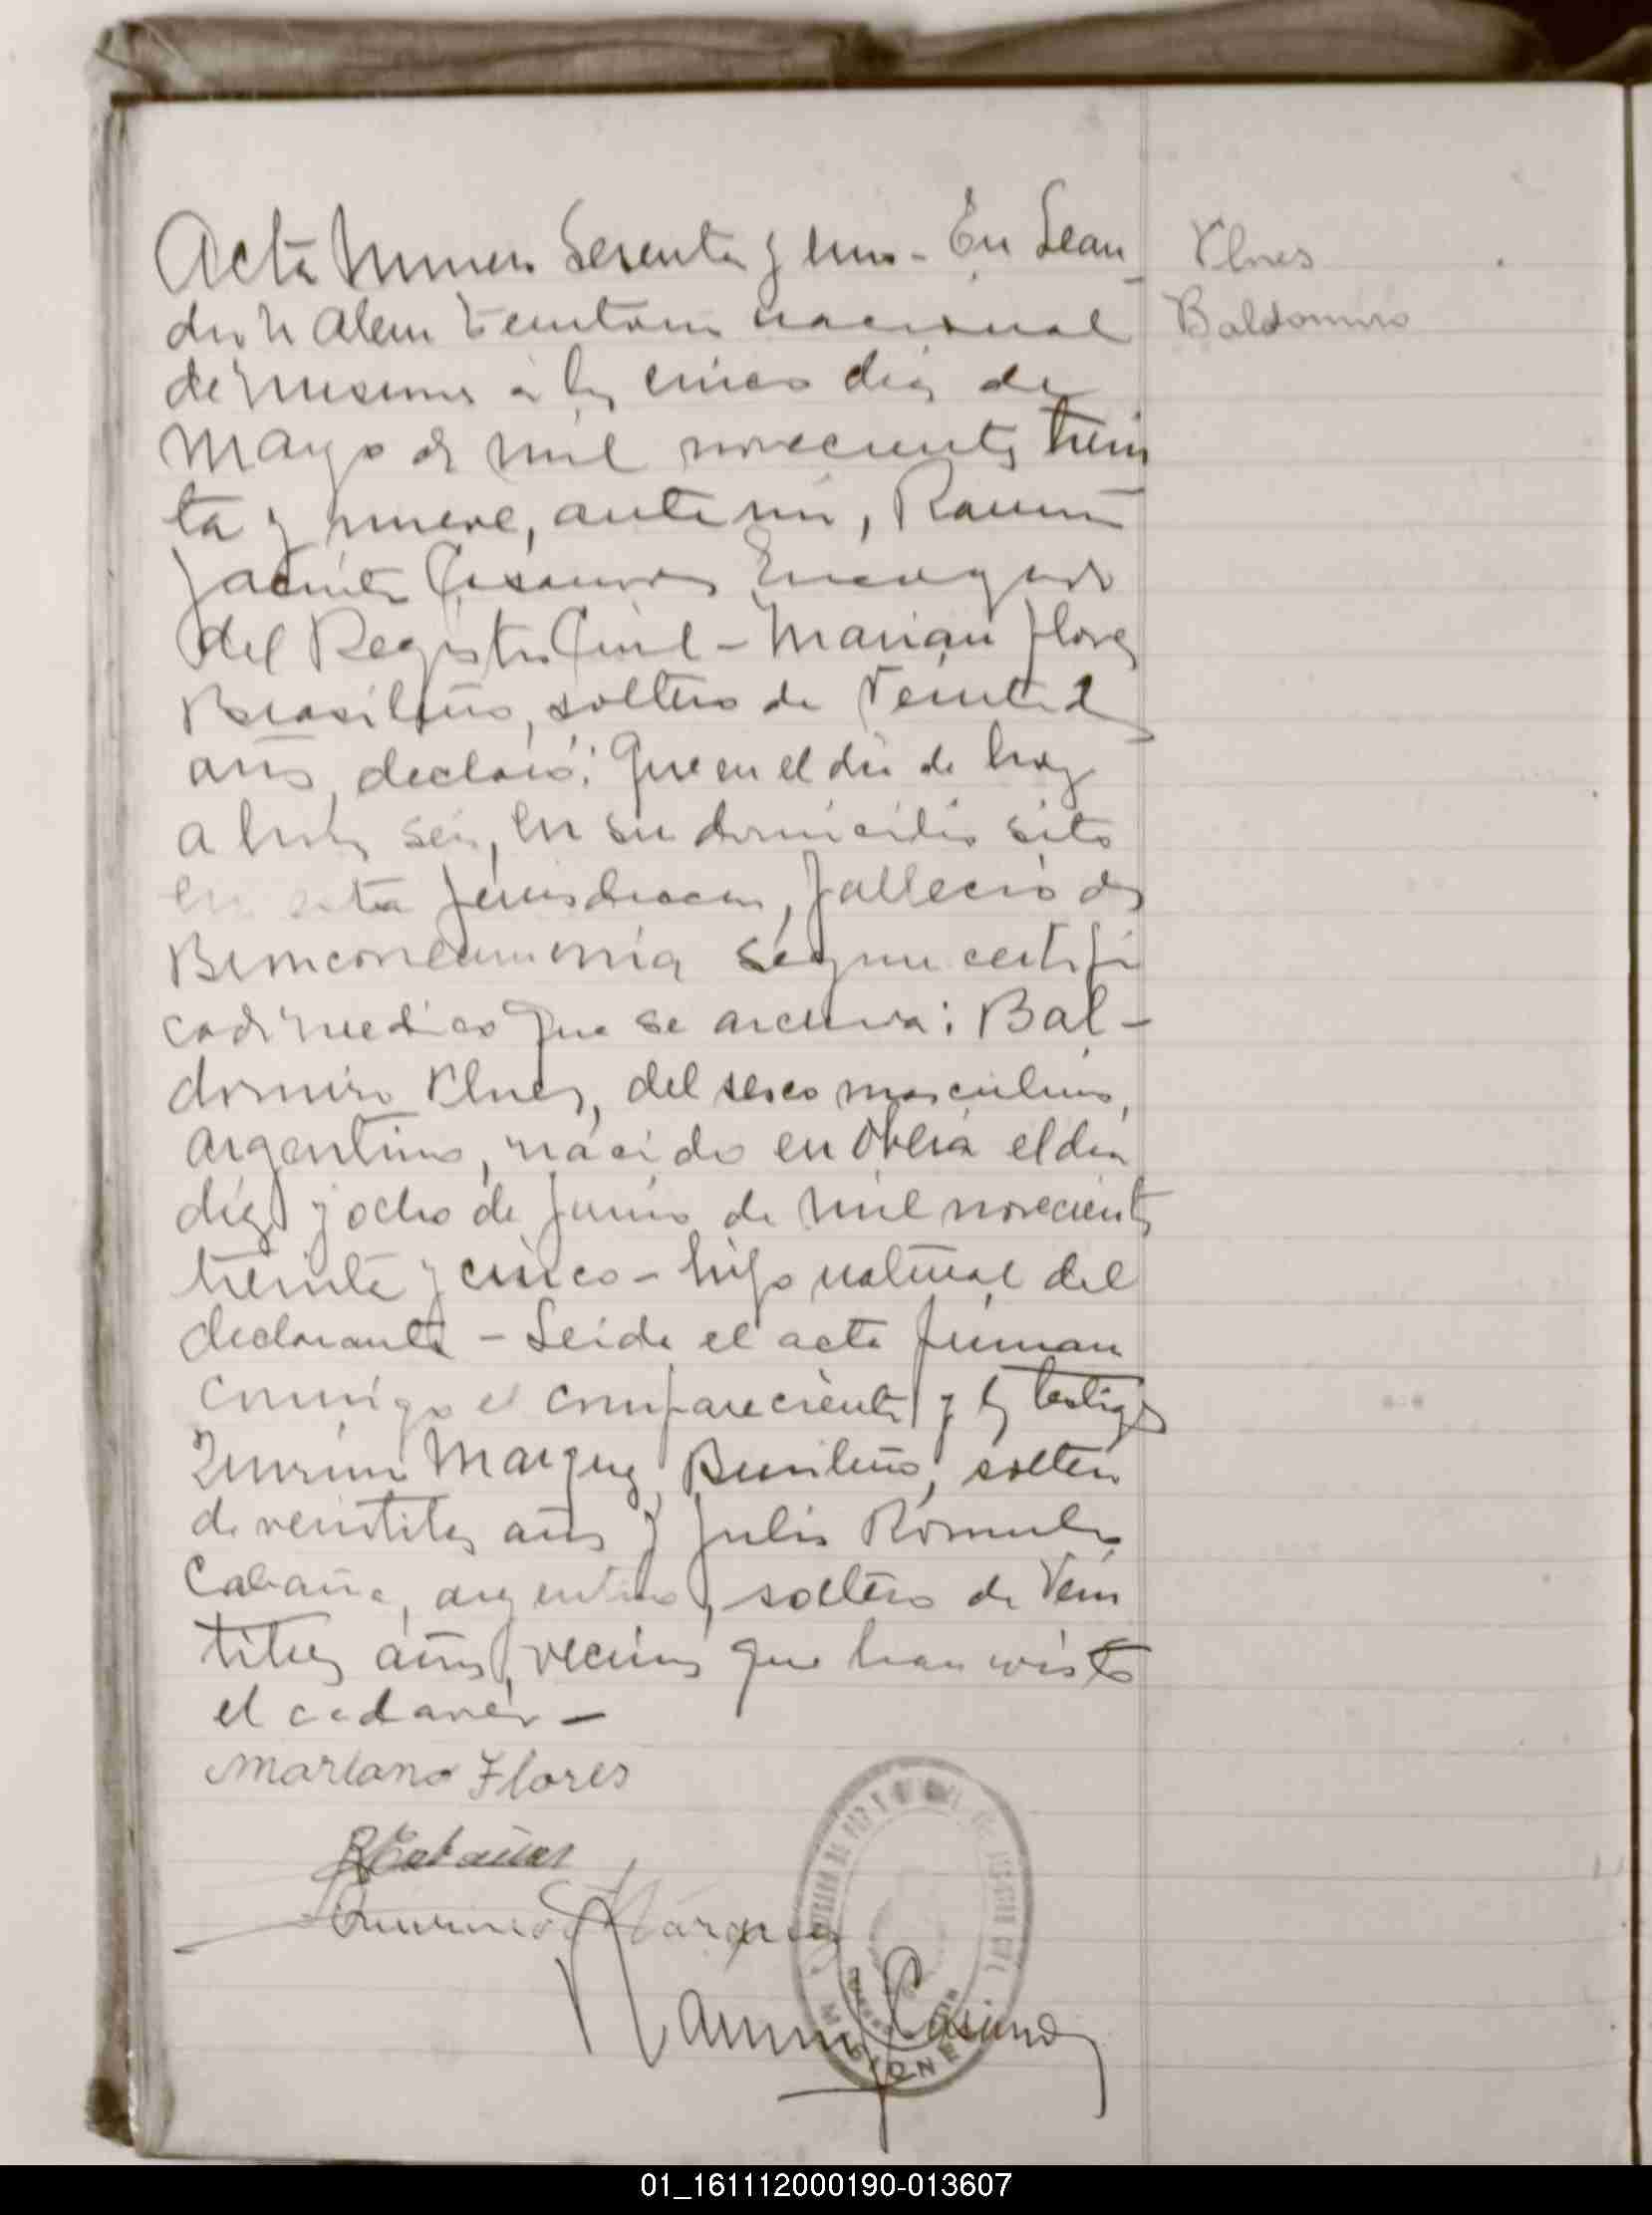 Acta Numero Sesenta y uno - En Lean
Flores
dro N Alem Territorio nacional
Baldomiro
de Misiones a los cinco dias de
Mayo de mil novecientos trein
ta y nueve, ante mi, Ramon
Jacinto Encargado
del Registro Civil - Mariano Flores
Brasileño, soltero de
años, declaró: Que en el dia de hoy
a horas seis, en su domicilio sito
en esta jurisdiccion, falleció de
según certifi
cado medico que se archiva: Bal-
domiro Flores, del sexo masculino,
argentino, nacido en Oberá el dia
diez y ocho de Junio de mil novecientos
treinta y cinco - hijo natural del
declarante - Leida el acta firman
conmigo el compareciente y los testigos
Marquez Brasileño, soltero
de veintitres años y Julio Romulo
Cabaña, argentino, soltero de Vein
titres años, vecinos que han visto
el cadaver -
Mariano Flores
Marquez
Ramon
MISIONES
01_161112000190-013607